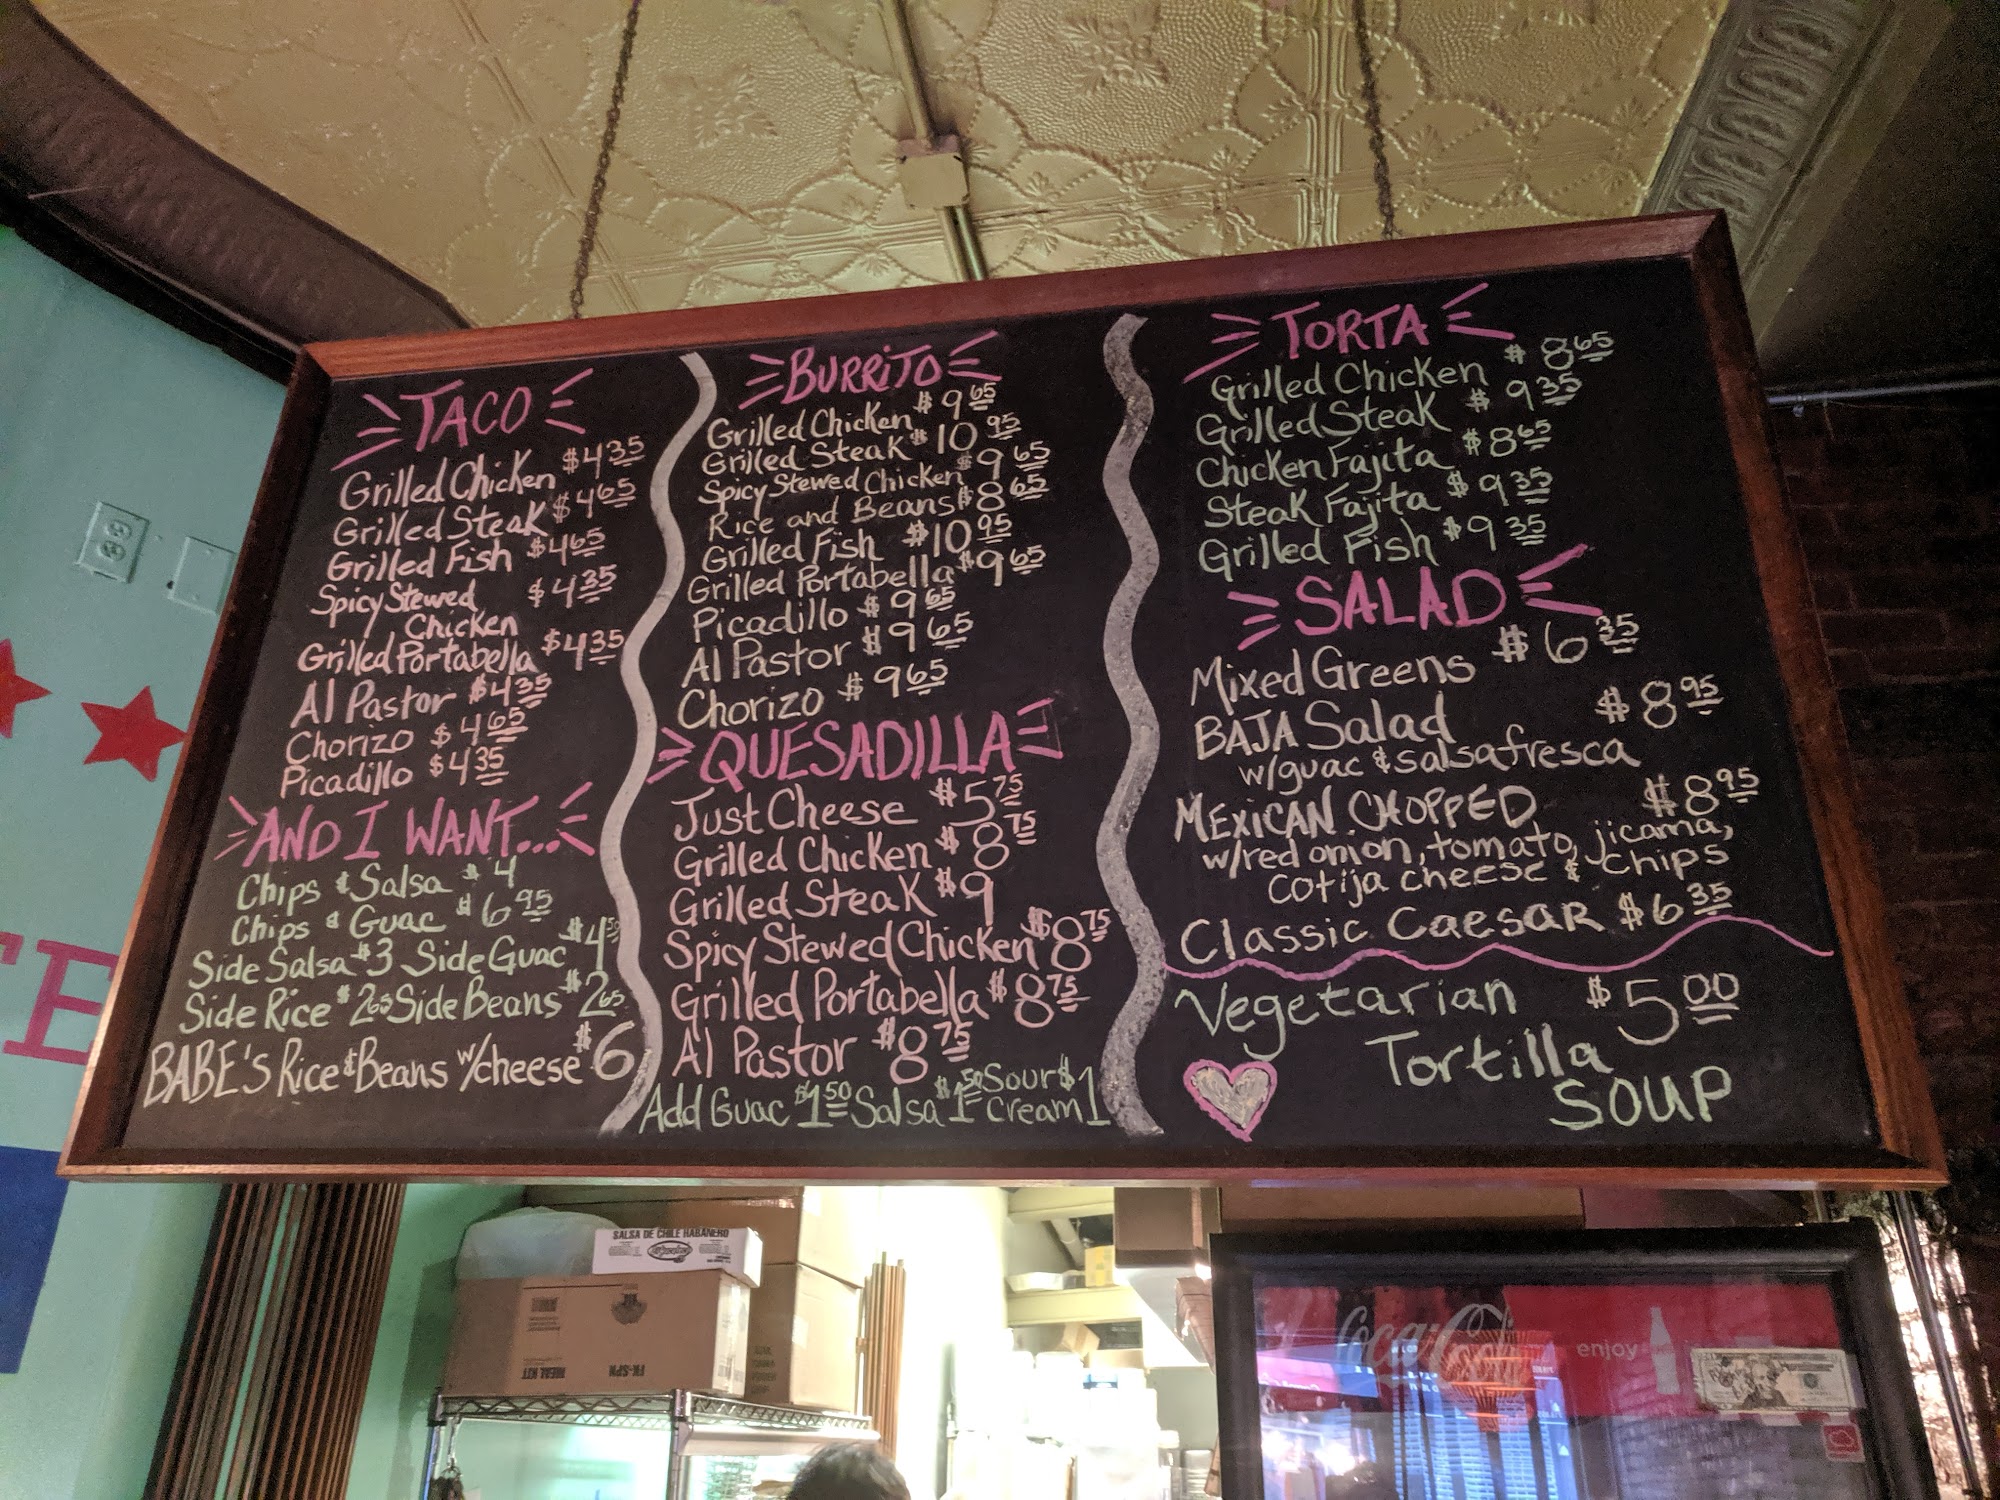 TACO
Grilled Chicken $4 35
Grilled Steak $4 65
Grilled Fish $4 65
Spicy Stewed $4 35
Chicken
Grilled Portabella $4 35
Al Pastor $4 35
Chorizo $4 65
Picadillo $4 35
AND I WANT...
Chips & Salsa $4
Chips & Guac $6 95
Side Salsa $3 Side Guac $4 50
Side Rice $2 65 Side Beans $2 65
BABE'S Rice & Beans w/cheese $6
BURRITO
Grilled Chicken $9 65
Grilled Steak $10 95
Spicy Stewed Chicken $9 65
Rice and Beans $8 65
Grilled Fish $10 95
Grilled Portabella $9 65
Picadillo $9 65
Al Pastor $9 65
Chorizo $9 65
QUESADILLA
Just Cheese $5 75
Grilled Chicken $8 75
Grilled Steak $9
Spicy Stewed Chicken $8 75
Grilled Portabella $8 75
Al Pastor $8 75
Add Guac $1 50 Salsa $1 50 Sour Cream $1
TORTA
Grilled Chicken $8 65
Grilled Steak $9 35
Chicken Fajita $8 65
Steak Fajita $9 35
Grilled Fish $9 35
SALAD
Mixed Greens $6 35
BAJA Salad $8 95
w/guac & salsa fresca
MEXICAN CHOPPED $8 95
w/red onion, tomato, jicama,
cotija cheese & chips
Classic Caesar $6 35
Vegetarian $5 00
Tortilla
SOUP
TE
SALSA DE CHILE HABANERO
MEAL KIT
FK-SPN
Coca-Cola
enjoy